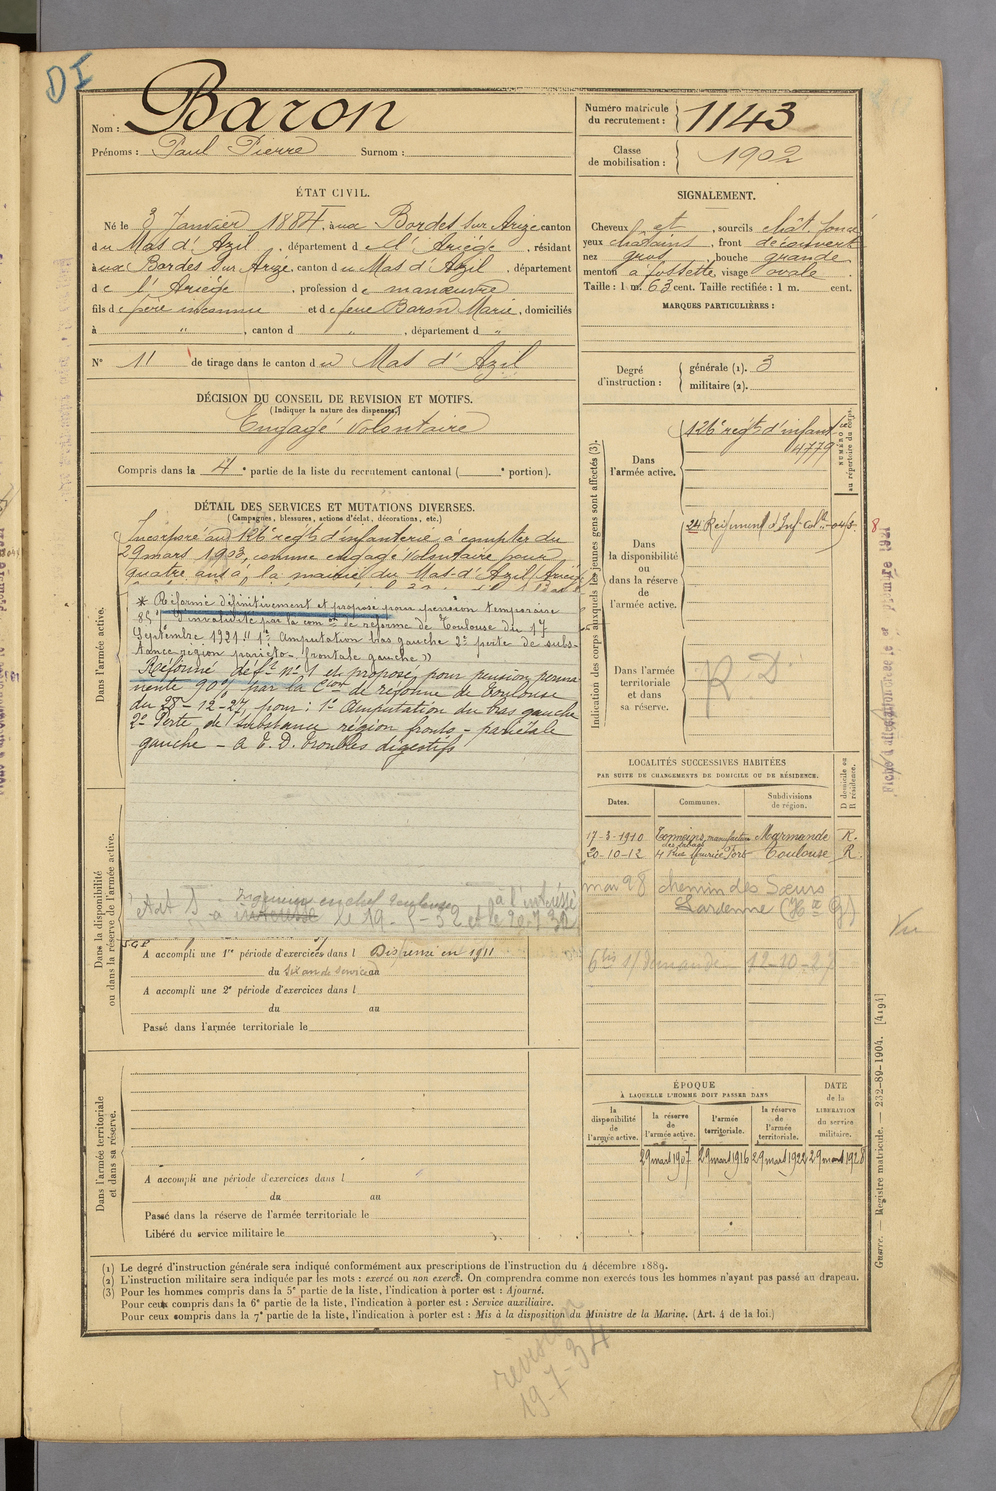 DI
Nom : Baron
Prénoms : Paul Pierre Surnom :
Numéro matricule du recrutement : 1143
Classe de mobilisation : 1902
ÉTAT CIVIL.
Né le 3 Janvier 1884, à ux Bordes sur Arize canton
du Mas d'Azil, département de l'Ariège, résidant
à ux Bordes sur Arize, canton du Mas d'Azil, département
de l'Ariège, profession de manœuvre
fils de père inconnu et de feue Baron Marie, domiciliés
à " , canton d " , département d "
N° 11 de tirage dans le canton du Mas d'Azil
DÉCISION DU CONSEIL DE REVISION ET MOTIFS.
(Indiquer la nature des dispenses.)
Engagé Volontaire
Compris dans la 4e partie de la liste du recrutement cantonal ( e portion).
SIGNALEMENT.
Cheveux et , sourcils chât. foncé
yeux châtains , front découvert
nez gros , bouche grande
menton à fossette, visage ovale .
Taille : 1 m. 63 cent. Taille rectifiée : 1 m. cent.
MARQUES PARTICULIÈRES :
Degré d'instruction :
générale (1). 3
militaire (2).
DÉTAIL DES SERVICES ET MUTATIONS DIVERSES.
(Campagnes, blessures, actions d'éclat, décorations, etc.)
Dans l'armée active.
Incorporé au 126e régt d'infanterie à compter du
29 mars 1903, comme engagé volontaire pour
quatre ans à la mairie du Mas-d'Azil (Ariège
* Réformé définitivement et proposé pour pension temporaire
85% d'invalidité par la com on de réforme de Toulouse du 17
Septembre 1921 " 1° Amputation bras gauche 2° perte de subs-
tance région pariéto-frontale gauche "
Réformé déf.t n° 1 et proposé pour pension perma-
nente 90% par la C ion de réforme de Toulouse
du 28-12-27, pour : 1° Amputation du bras gauche
2° Perte de substance région fronto-pariétale
gauche - A E. D. troubles digestifs
Dans la disponibilité ou dans la réserve de l'armée active.
Ingénieur en chef Toulouse à l'intéressé
A accompli une 1re période d'exercices dans l Dispensé en 1911
du Six ans de service au
A accompli une 2e période d'exercices dans l
du au
Passé dans l'armée territoriale le
Dans l'armée territoriale et dans sa réserve.
A accompli une période d'exercices dans l
du au
Passé dans la réserve de l'armée territoriale le
Libéré du service militaire le
Indication des corps auxquels les jeunes gens sont affectés (3).
NUMÉRO au répertoire du corps.
Dans l'armée active.
126e régt d'infant ie
4779
Dans la disponibilité ou dans la réserve de l'armée active.
24 Régiment d'Inf Col le
Dans l'armée territoriale et dans sa réserve.
R D
LOCALITÉS SUCCESSIVES HABITÉES
PAR SUITE DE CHANGEMENTS DE DOMICILE OU DE RÉSIDENCE.
Dates. Communes. Subdivisions de région. D domicile ou R résidence.
17-3-1910 Tonneins, manufacture des tabacs Marmande R.
20-10-12 Toulouse R.
mai 28 chemin des Sœurs
Lardenne (Hte G)
12-10-27
Vu
ÉPOQUE
À LAQUELLE L'HOMME DOIT PASSER DANS
la disponibilité de l'armée active.
la réserve de l'armée active.
l'armée territoriale.
la réserve de l'armée territoriale.
DATE de la LIBÉRATION du service militaire.
29 mars 1907 29 mars 1916 29 mars 1922 29 mars 1928
(1) Le degré d'instruction générale sera indiqué conformément aux prescriptions de l'instruction du 4 décembre 1889.
(2) L'instruction militaire sera indiquée par les mots : exercé ou non exercé. On comprendra comme non exercés tous les hommes n'ayant pas passé au drapeau.
(3) Pour les hommes compris dans la 5e partie de la liste, l'indication à porter est : Ajourné.
Pour ceux compris dans la 6e partie de la liste, l'indication à porter est : Service auxiliaire.
Pour ceux compris dans la 7e partie de la liste, l'indication à porter est : Mis à la disposition du Ministre de la Marine. (Art. 4 de la loi.)
Guerre. — Registre matricule. — 232-89-1904. [4194]
révision
19-7-34